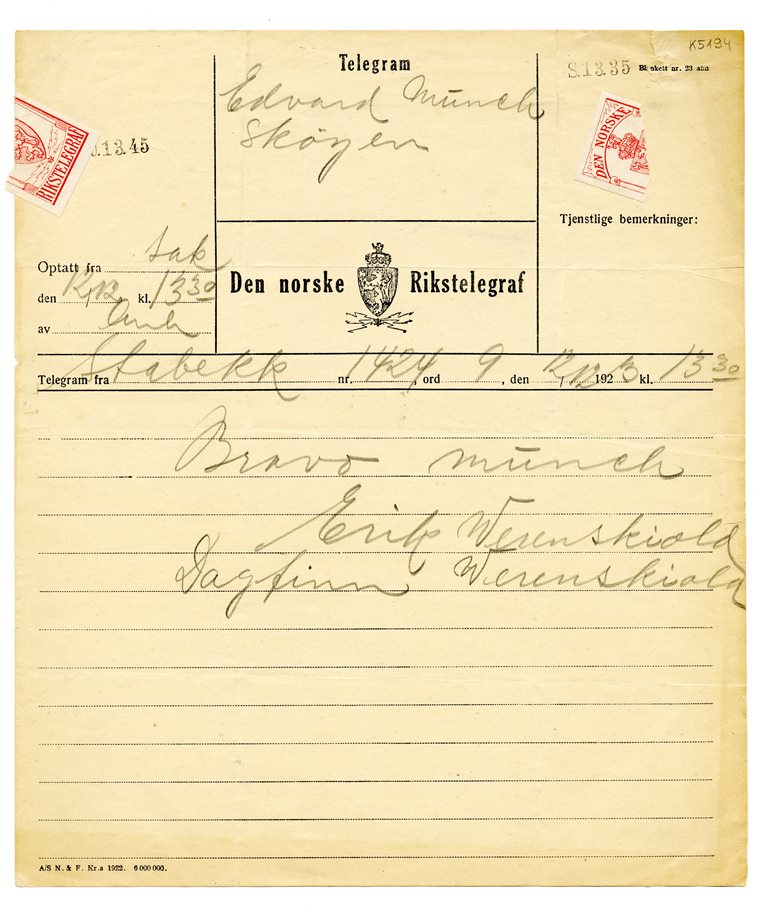 K5194
Telegram
S.13.35 Blankett nr. 23 alm.
Edvard Munch
Skøyen
RIKSTELEGRAF
.13.45
DEN NORSKE
Tjenstlige bemerkninger:
Optatt fra sak
den 12/12 kl. 13 30
av
Den norske Rikstelegraf
Telegram fra Stabekk nr. 1424, ord 9, den 12/12 1923 kl. 13 30
Bravo Munch
Erik Werenskiold
Dagfinn Werenskiold
A/S N. & F. Kr.a 1922. 6 000 000.